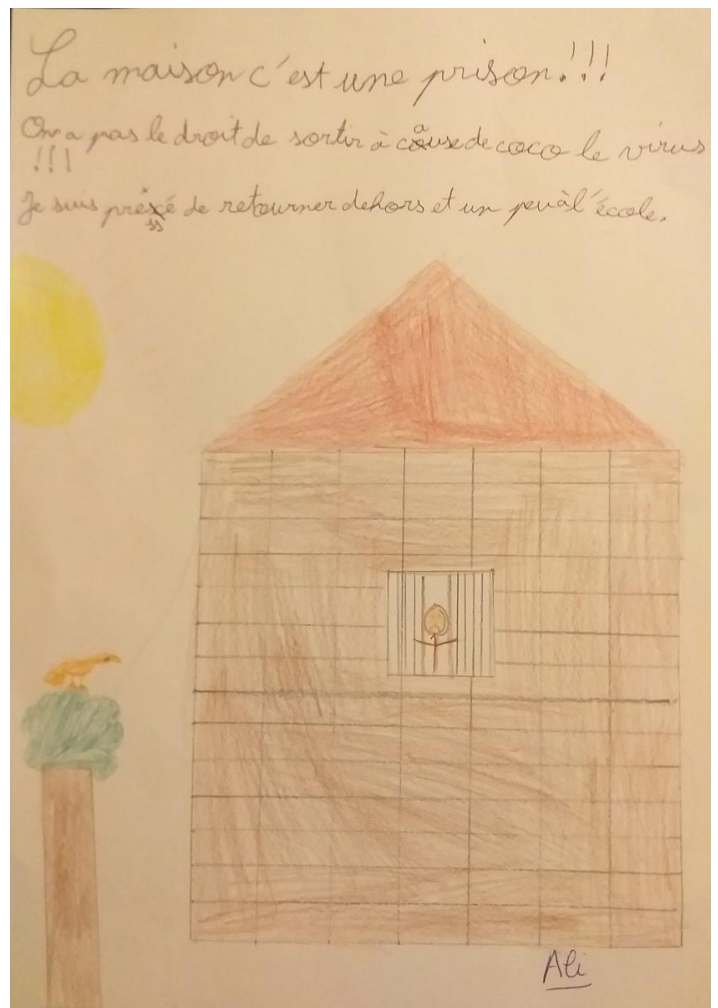 La maison c'est une prison!!!
On a pas le droit de sortir à cause de coco le virus
!!!
Je suis préssé de retourner dehors et un peu à l'école.
Ali